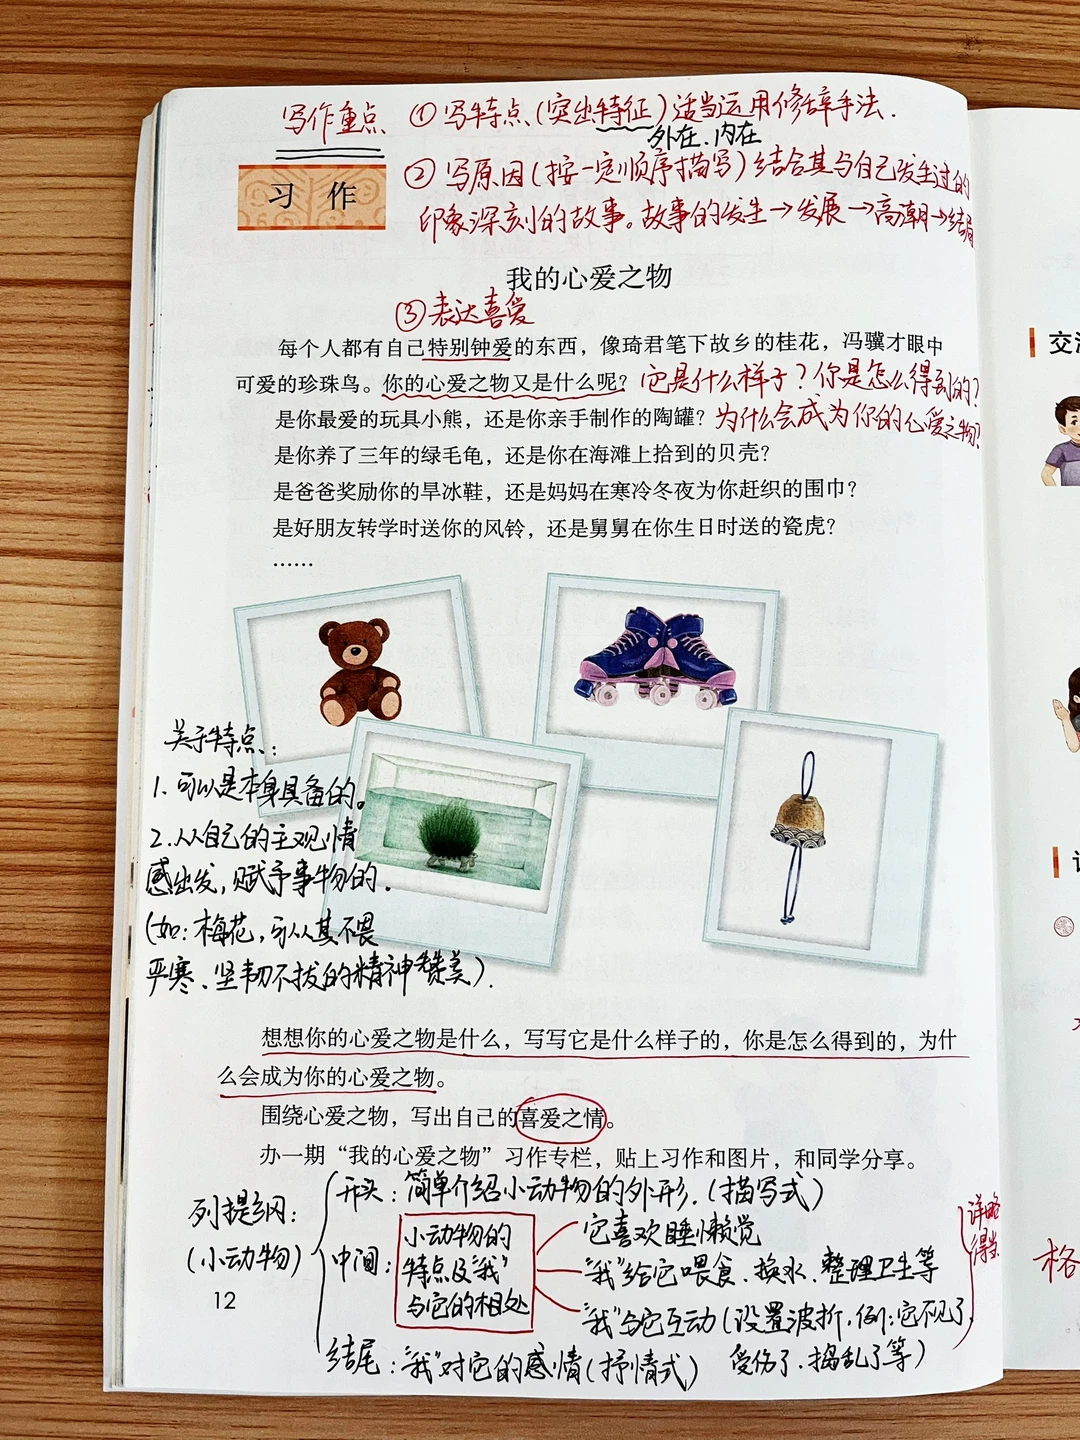 写作重点 ①写特点(突出特征)适当运用修辞手法.
外在.内在
习 作
②写原因(按一定顺序描写)结合其与自己发生过的
印象深刻的故事。故事的发生→发展→高潮→结局
我的心爱之物
③表达喜爱
每个人都有自己特别钟爱的东西，像琦君笔下故乡的桂花，冯骥才眼中
可爱的珍珠鸟。你的心爱之物又是什么呢？它是什么样子?你是怎么得到的?
是你最爱的玩具小熊，还是你亲手制作的陶罐？为什么会成为你的心爱之物?
是你养了三年的绿毛龟，还是你在海滩上拾到的贝壳？
是爸爸奖励你的旱冰鞋，还是妈妈在寒冷冬夜为你赶织的围巾？
是好朋友转学时送你的风铃，还是舅舅在你生日时送的瓷虎？
……
关于特点:
1.可以是本身具备的。
2.从自己的主观情
感出发,赋予事物的.
(如:梅花,可从其不畏
严寒、坚韧不拔的精神赞美).
想想你的心爱之物是什么，写写它是什么样子的，你是怎么得到的，为什
么会成为你的心爱之物。
围绕心爱之物，写出自己的喜爱之情。
办一期“我的心爱之物”习作专栏，贴上习作和图片，和同学分享。
列提纲:
(小动物)
开头:简单介绍小动物的外形.(描写式)
中间:
小动物的
特点及"我"
与它的相处
它喜欢睡懒觉
"我"给它喂食、换水、整理卫生等
"我"与它互动(设置波折.例:它不见了.
受伤了.捣乱了等)
详略
得当
结尾:"我"对它的感情(抒情式)
12
交
格